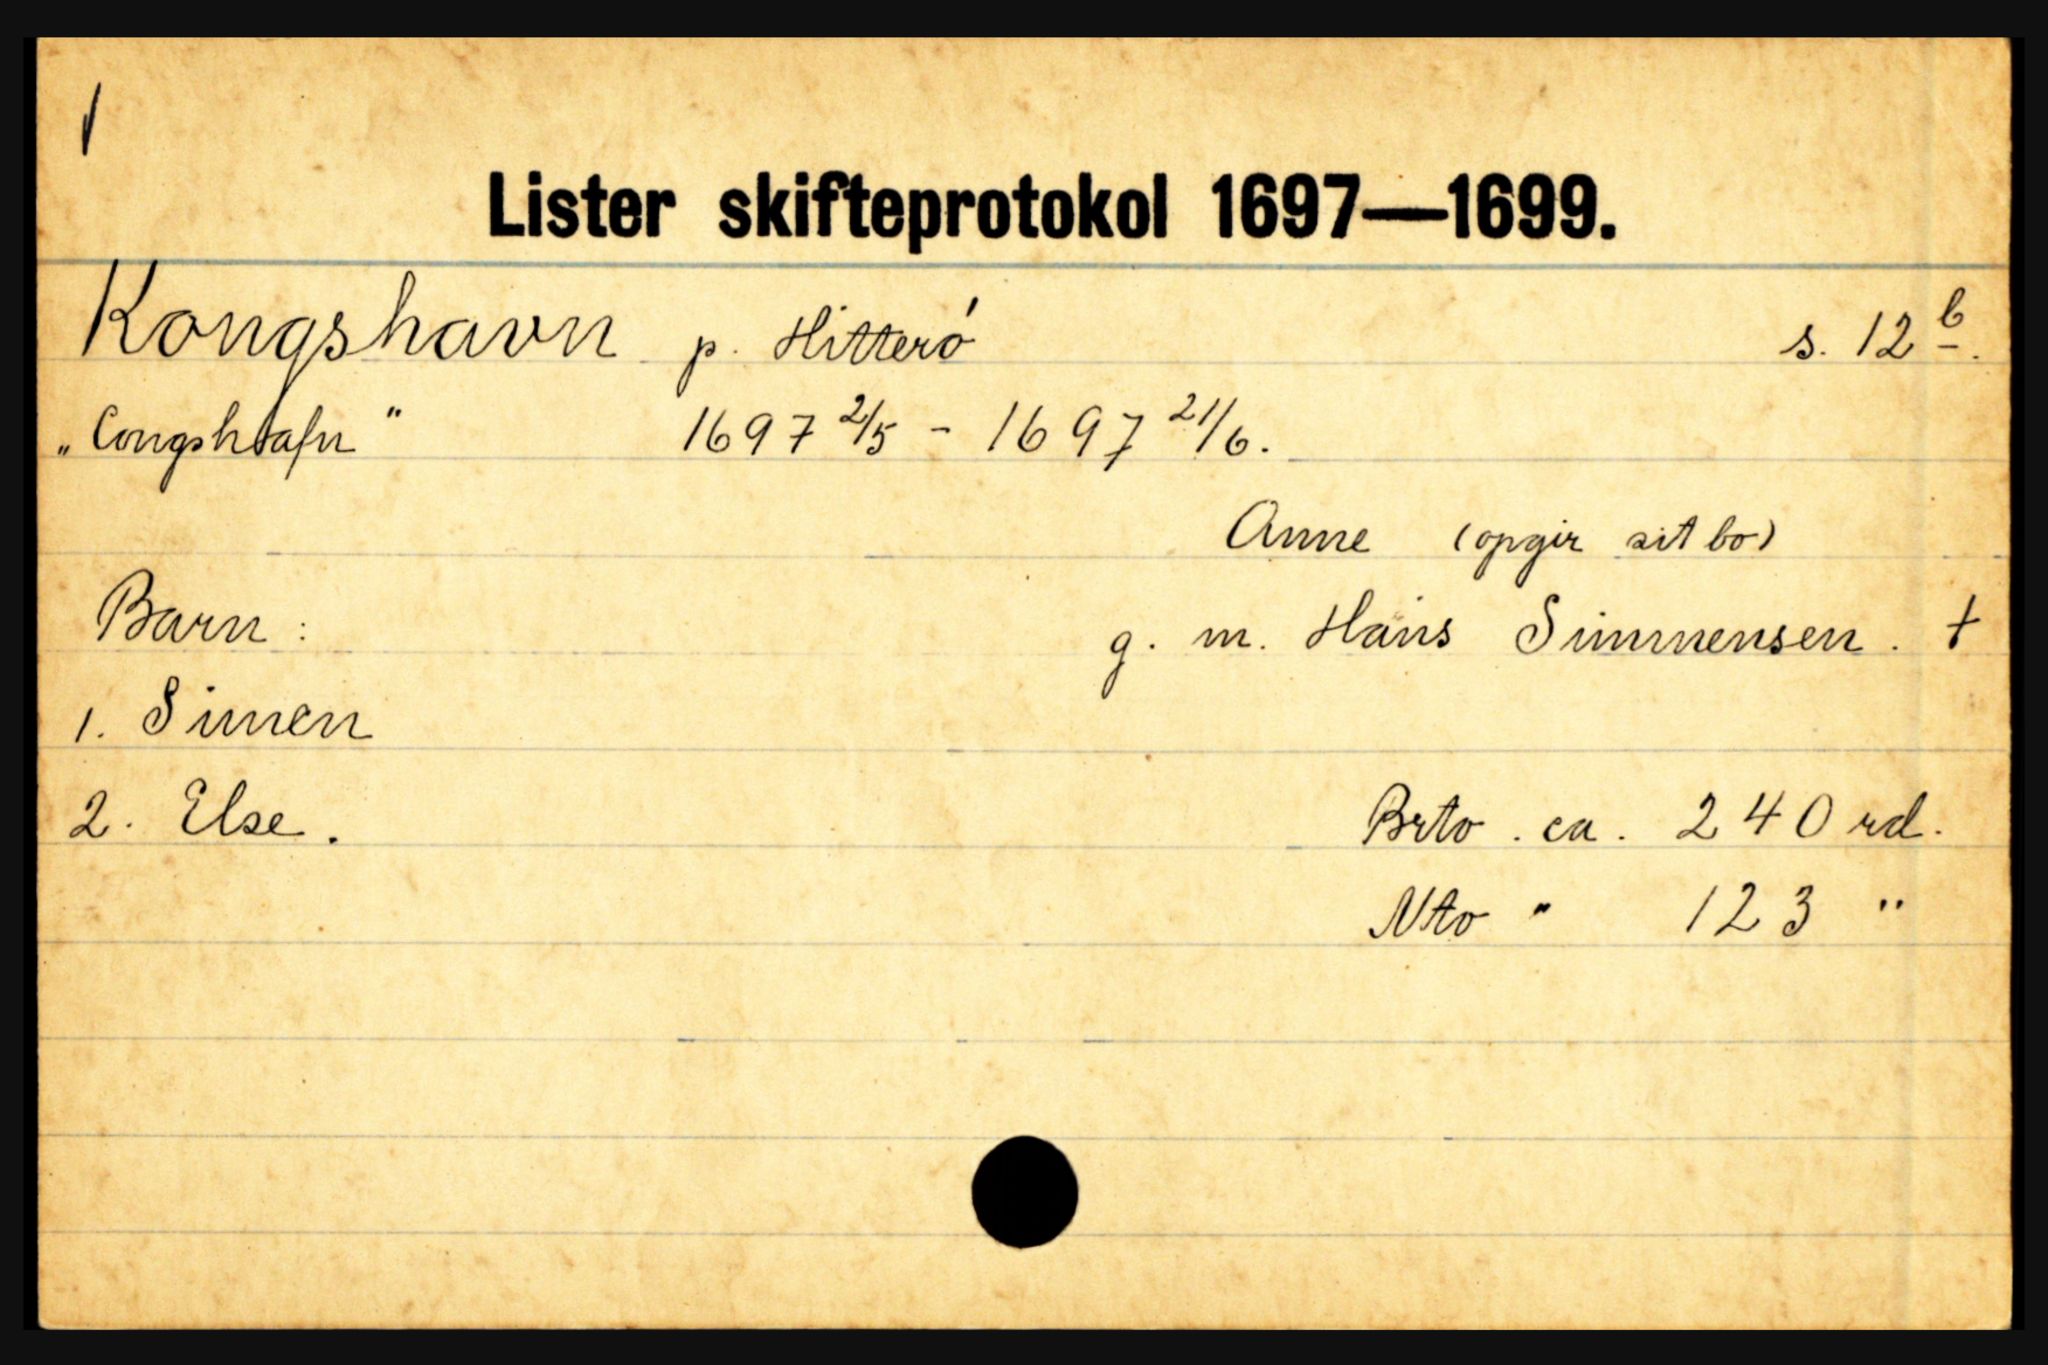 Lister skifteprotokol 1697—1699.
Kongshavn p. Hitterö s. 12 b.
„Congshafn" 1697 2/5 - 1697 21/6.
Anne (opgir sit bo)
Barn: g. m. Hans Simmensen. †
1. Simen
2. Else. Brto. ca. 240 rd.
Nto " 123 "